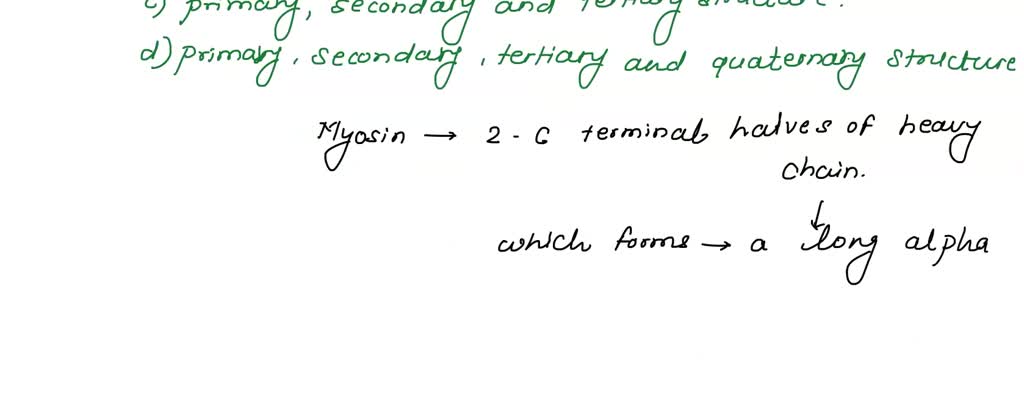 c) primary, secondary and tertiary structure.
d) primary, secondary, tertiary and quaternary structure
Myosin → 2 - C terminal halves of heavy
chain.
↓
which forms → a long alpha